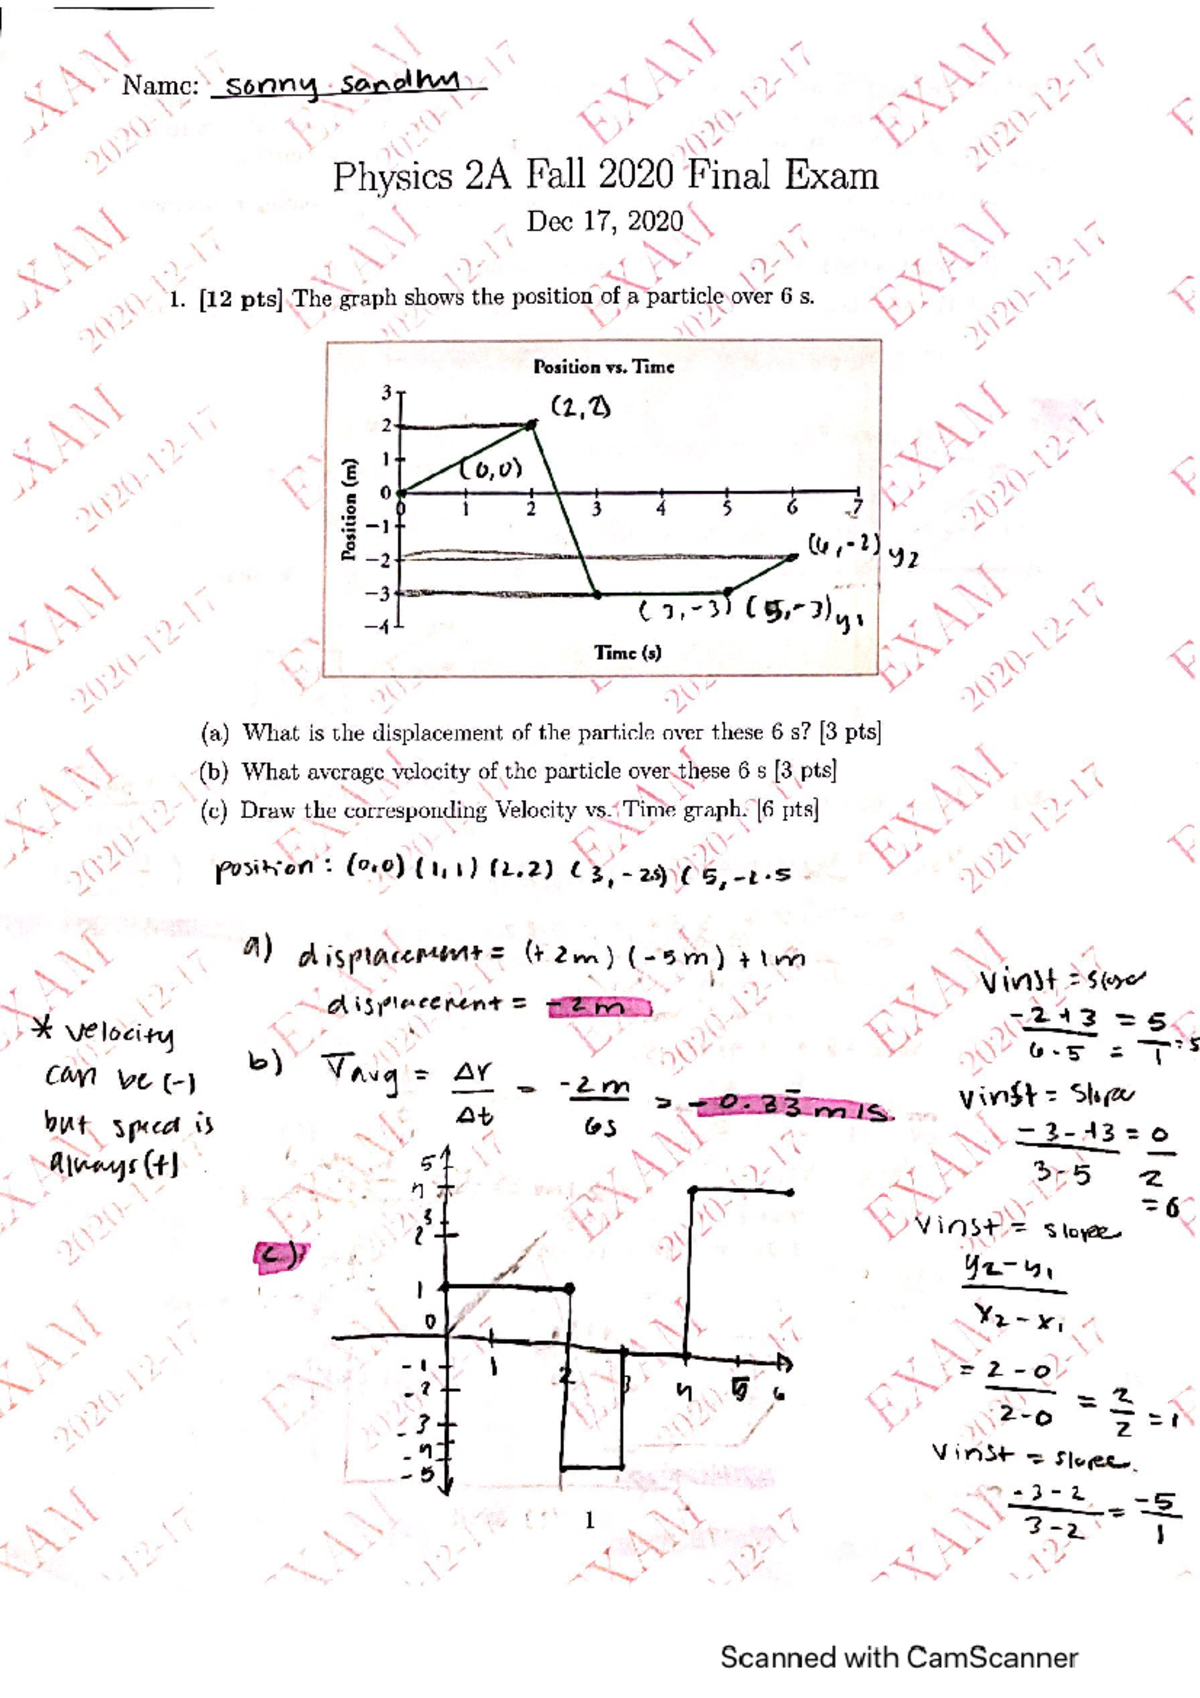 Name: sonny sandhu
Physics 2A Fall 2020 Final Exam
Dec 17, 2020
1. [12 pts] The graph shows the position of a particle over 6 s.
Position vs. Time
3
2
1
0
-1
-2
-3
-4
Position (m)
0 1 2 3 4 5 6 7
Time (s)
(2,2)
(0,0)
(6,-2) y2
(3,-3) (5,-3) y1
(a) What is the displacement of the particle over these 6 s? [3 pts]
(b) What average velocity of the particle over these 6 s [3 pts]
(c) Draw the corresponding Velocity vs. Time graph. [6 pts]
position: (0,0) (1,1) (2,2) (3,-25) (5,-2.5
a) displacement = (+2m) (-5m) +1m
displacement = -2m
* velocity
can be (-)
but speed is
always (+)
b) Vavg = Δr/Δt = -2m/6s = -0.33 m/s.
c)
5
4
3
2
1
0
-1
-2
-3
-4
-5
1 2 3 4 5 6
Vinst = slope
-2+3 = 5
6-5 = 1 = 5
Vinst = slope
-3-+3 = 0
3-5 2
= 0
Vinst = slope
y2-y1
x2-x1
= 2-0 = 2 = 1
2-0 2
Vinst = slope.
-3-2 = -5
3-2 1
1
EXAM
2020-12-17
Scanned with CamScanner